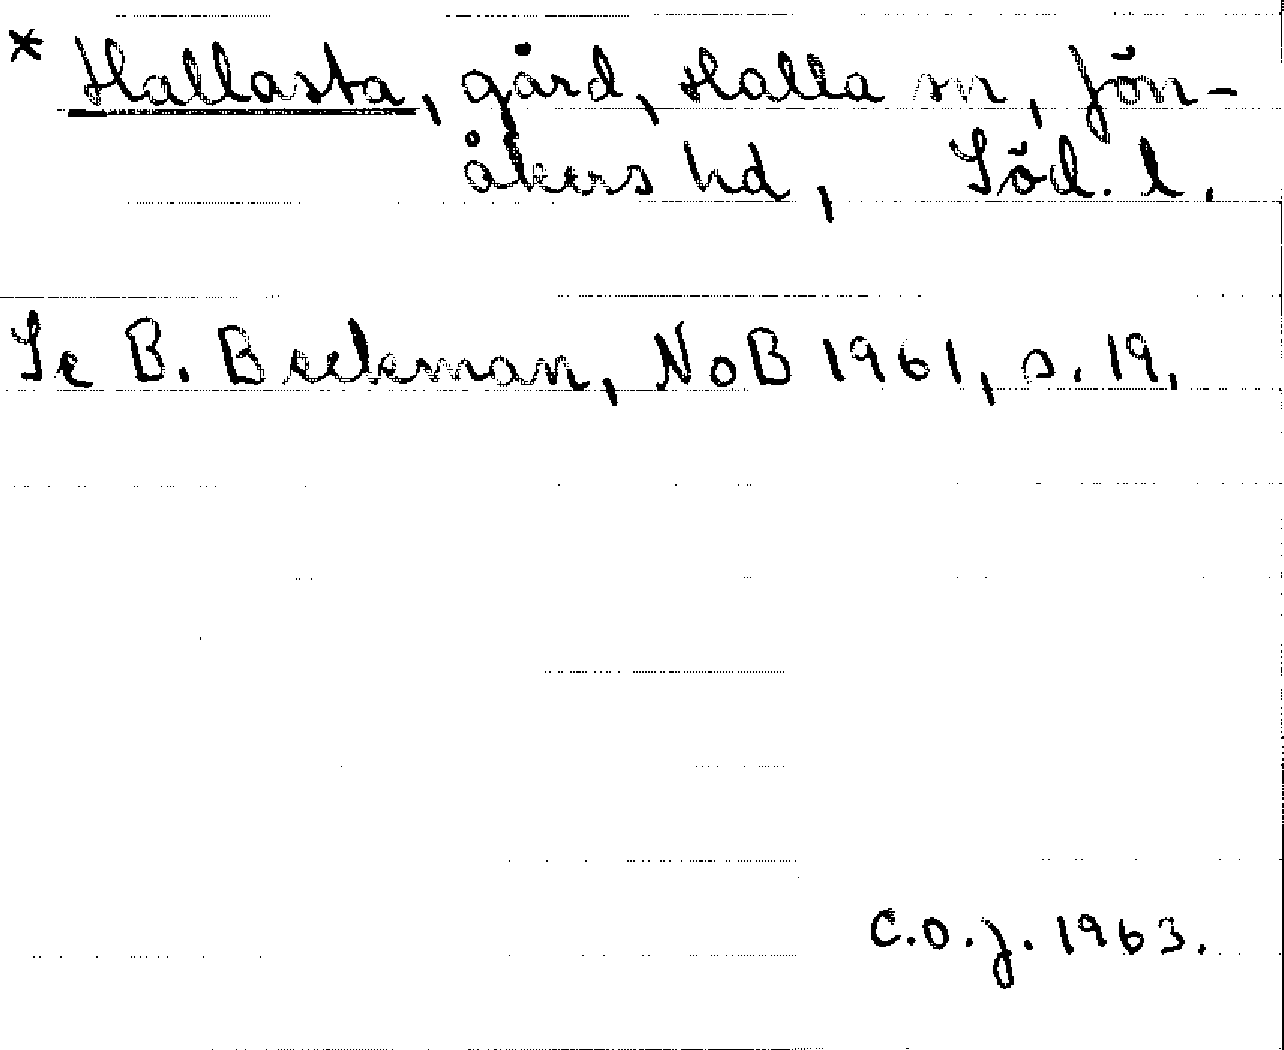 * Hallasta, gård, Halla sn, Jön-
åkers hd, Söd. l.
Se B. Beckman, NoB 1961, s. 19.
C.O.J. 1963.